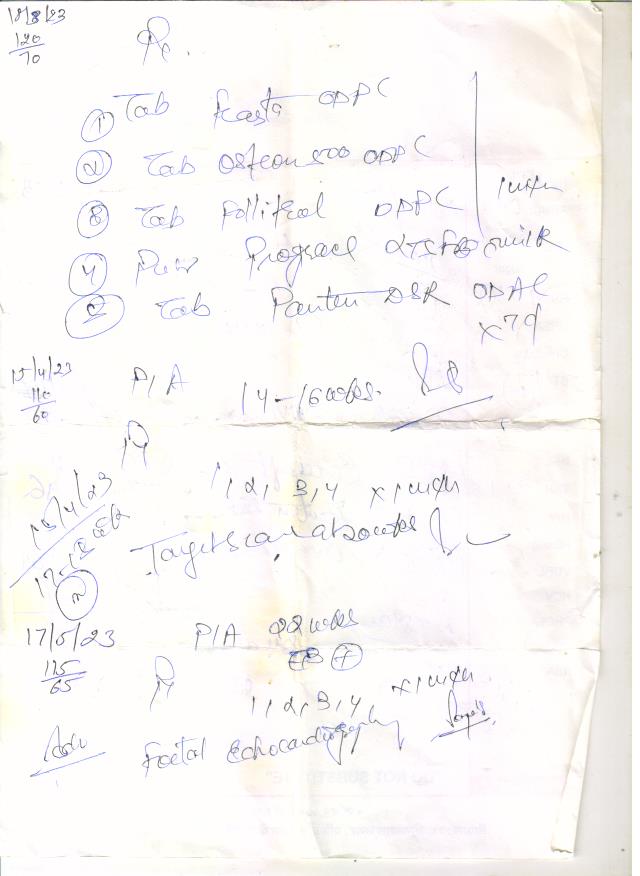 18/3/23
120
70
Rx.
① Tab Feasta ODPC
② Tab Osteon 500 ODPC
③ Tab Follitral ODPC
1 mth
④ Pow Prograce 2TSF BD c milk
⑤ Tab Pantin DSR ODAC
x 7d
15/4/23 P/A 14-16 wks.
110
60
Rx
1, 2, 3, 4 x 1 mth
15/4/23
17-18
Target scan at 20 wks
17/5/23 P/A 22 wks
115
65
Rx
1, 2, 3, 4, x 1 mth
Adv Foetal Echocardiography